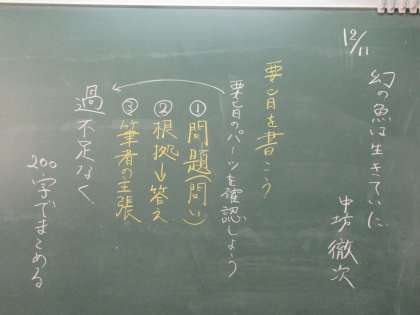 12/11
幻の魚は生きていた
中坊徹次
要旨を書こう
要旨のパーツを確認しよう
①問題(問い)
②根拠→答え
③筆者の主張
過不足なく
200字でまとめる